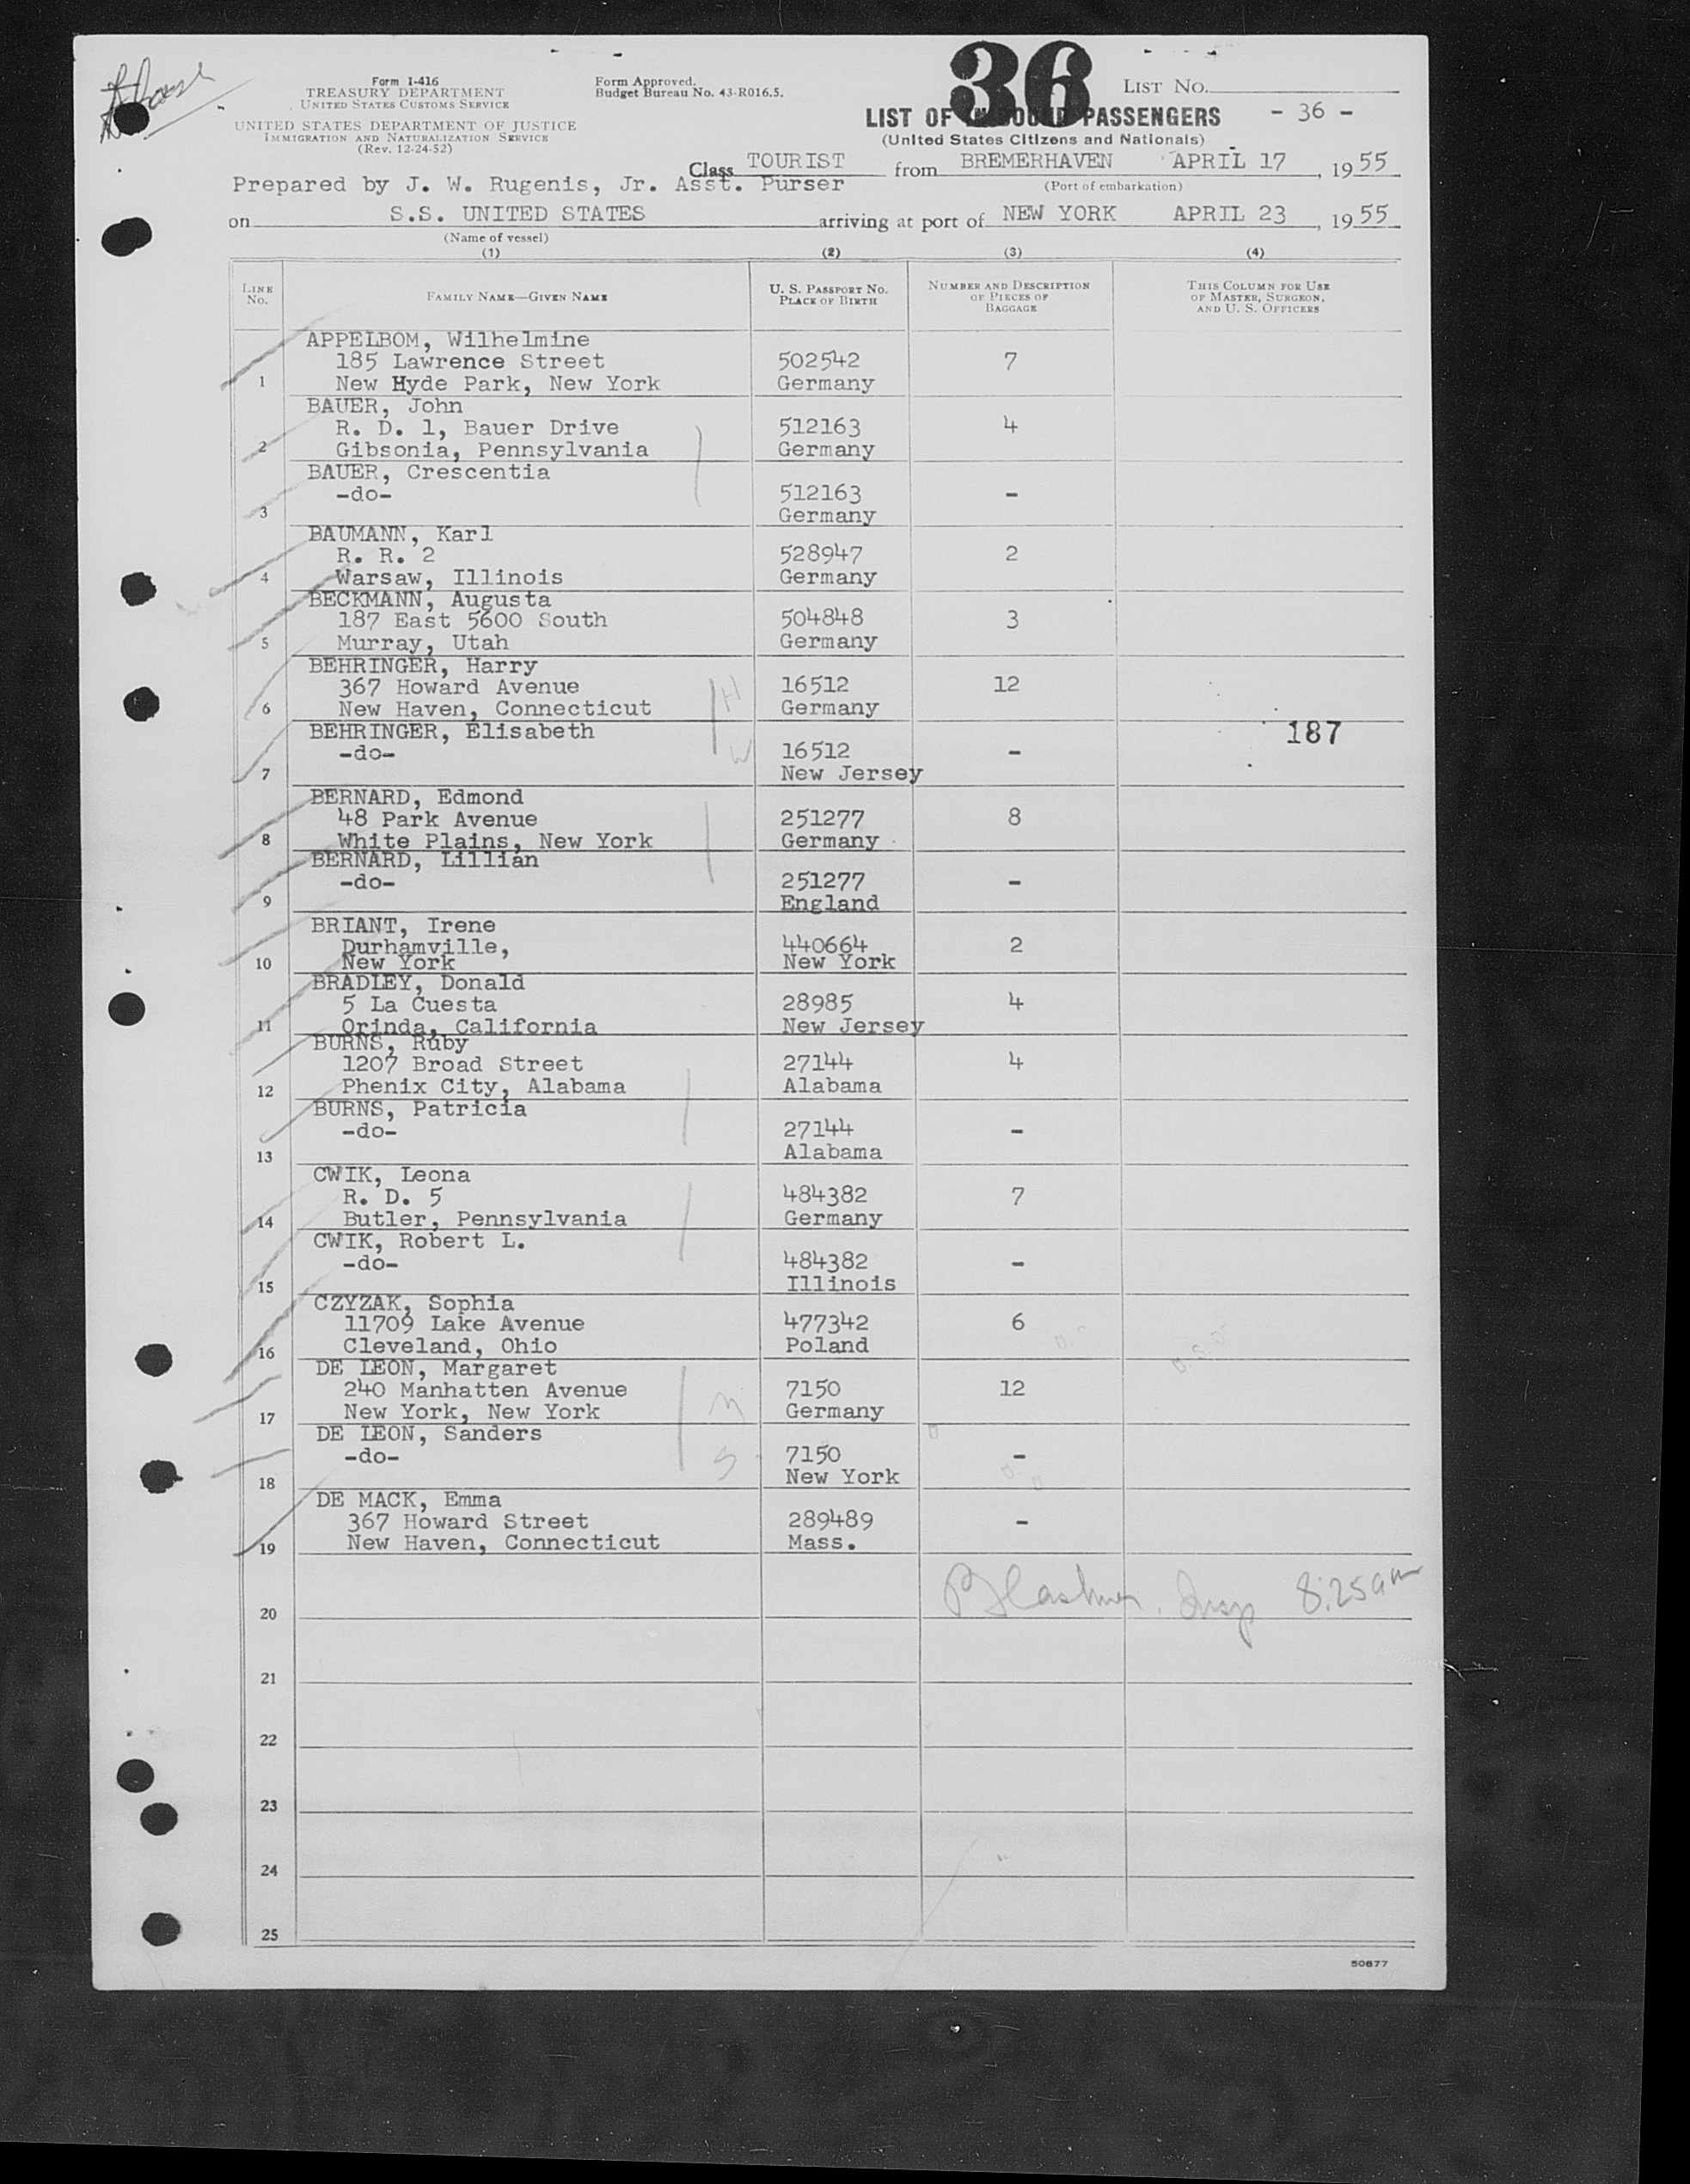 36
Form I-416
TREASURY DEPARTMENT
UNITED STATES CUSTOMS SERVICE
UNITED STATES DEPARTMENT OF JUSTICE
IMMIGRATION AND NATURALIZATION SERVICE
(Rev. 12-24-52)
Form Approved.
Budget Bureau No. 43-R016.5.
LIST NO.
- 36 -
LIST OF INBOUND PASSENGERS
(United States Citizens and Nationals)
Class TOURIST from BREMERHAVEN APRIL 17, 1955
(Port of embarkation)
Prepared by J. W. Rugenis, Jr. Asst. Purser
on S.S. UNITED STATES arriving at port of NEW YORK APRIL 23, 1955
(Name of vessel)
(1) (2) (3) (4)
LINE NO. FAMILY NAME—GIVEN NAME U. S. PASSPORT NO. PLACE OF BIRTH NUMBER AND DESCRIPTION OF PIECES OF BAGGAGE THIS COLUMN FOR USE OF MASTER, SURGEON, AND U. S. OFFICERS
APPELBOM, Wilhelmine
185 Lawrence Street 502542 7
1 New Hyde Park, New York Germany
BAUER, John
R. D. 1, Bauer Drive 512163 4
2 Gibsonia, Pennsylvania Germany
BAUER, Crescentia
-do- 512163 -
3 Germany
BAUMANN, Karl
R. R. 2 528947 2
4 Warsaw, Illinois Germany
BECKMANN, Augusta
187 East 5600 South 504848 3
5 Murray, Utah Germany
BEHRINGER, Harry
367 Howard Avenue H 16512 12
6 New Haven, Connecticut Germany
BEHRINGER, Elisabeth 187
-do- W 16512 -
7 New Jersey
BERNARD, Edmond
48 Park Avenue 251277 8
8 White Plains, New York Germany
BERNARD, Lillian
-do- 251277 -
9 England
BRIANT, Irene
Durhamville, 440664 2
10 New York New York
BRADLEY, Donald
5 La Cuesta 28985 4
11 Orinda, California New Jersey
BURNS, Ruby
1207 Broad Street 27144 4
12 Phenix City, Alabama Alabama
BURNS, Patricia
-do- 27144 -
13 Alabama
CWIK, Leona
R. D. 5 484382 7
14 Butler, Pennsylvania Germany
CWIK, Robert L.
-do- 484382 -
15 Illinois
CZYZAK, Sophia
11709 Lake Avenue 477342 6
16 Cleveland, Ohio Poland
DE LEON, Margaret
240 Manhatten Avenue M 7150 12
17 New York, New York Germany
DE LEON, Sanders
-do- S 7150 -
18 New York
DE MACK, Emma
367 Howard Street 289489 -
19 New Haven, Connecticut Mass.
20 Insp 8:25 am
21
22
23
24
25
50877